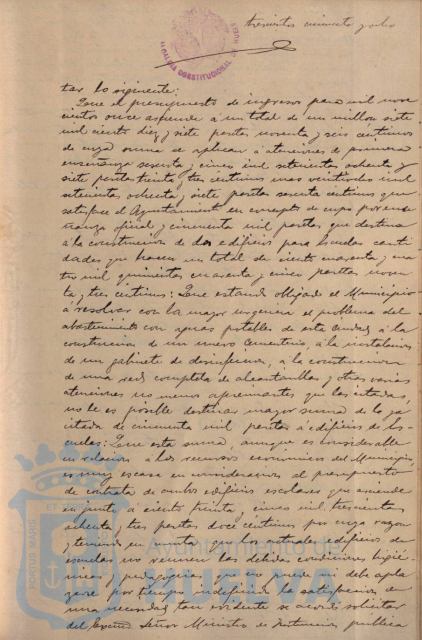 trescientos cincuenta y ocho
ALCALDIA CONSTITUCIONAL DE HUELVA
tar lo siguiente:
Que el presupuesto de ingresos para mil nove
cientos once asciende á un total de un millon siete
mil ciento diez y siete pesetas noventa y seis centimos
de cuya suma se aplican á atenciones de primera
enseñanza sesenta y cinco mil setecientas ochenta y
siete pesetas treinta y tres centimos mas veintiseis mil
setecientas ochenta y siete pesetas sesenta centimos que
satisface el Ayuntamiento en concepto de cupo por ense
ñanza oficial y cincuenta mil pesetas que destina
á la construccion de dos edificios para Escuelas canti
dades que hacen un total de ciento cuarenta y cua
tro mil quinientas cuarenta y cinco pesetas noven
ta y tres centimos: Que estando obligado el Municipio
á resolver con la mayor urgencia el problema del
abastecimiento con aguas potables de esta Ciudad á la
construccion de un nuevo Cementerio, á la instalacion
de un gabinete de desinfeccion, á la construccion
de una red completa de alcantarillas y otras varias
atenciones no menos apremiantes que las citadas,
no le es posible destinar mayor suma de la ya
citada de cincuenta mil pesetas á edificios de Es-
cuelas: Que esta suma, aunque es considerable
en relacion á los recursos económicos del Municipio,
es muy escasa en consideracion al presupuesto
de contrata de ambos edificios escolares que asciende
en junto á ciento treinta y cinco mil trescientas
ochenta y tres pesetas doce centimos por cuya razon
y teniendo en cuenta que los actuales edificios de
escuelas no reunen las debidas condiciones higié-
nicas y pedagogicas que no puede ni debe apla
zarse por tiempo indefinido la satisfaccion de
una necesidad tan evidente se acordó solicitar
del Excmo Señor Ministro de Instruccion publica
PORTUS MARIS ET
Ayuntamiento de
HUELVA